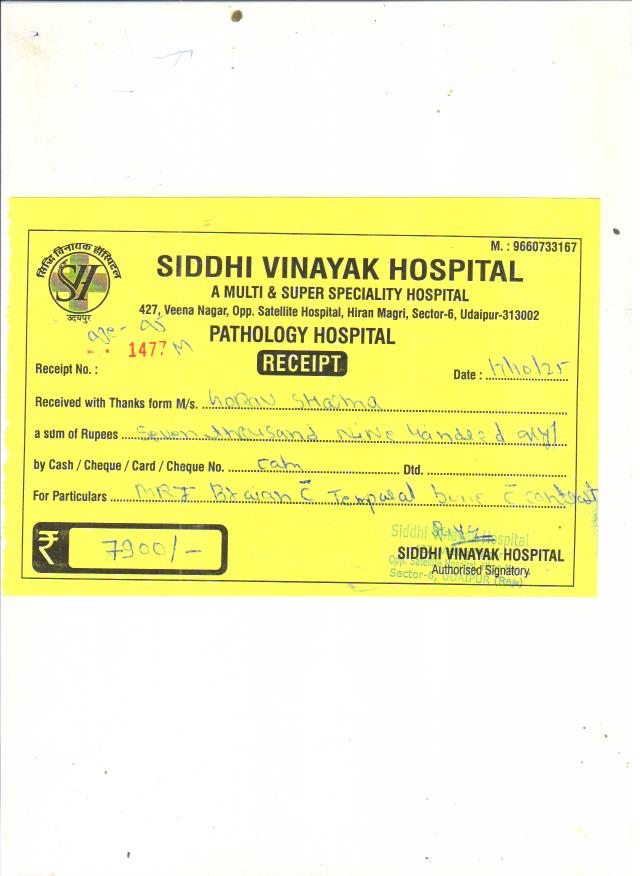 सिद्धि विनायक हॉस्पिटल
SH
उदयपुर
M. : 9660733167
SIDDHI VINAYAK HOSPITAL
A MULTI & SUPER SPECIALITY HOSPITAL
427, Veena Nagar, Opp. Satellite Hospital, Hiran Magri, Sector-6, Udaipur-313002
PATHOLOGY HOSPITAL
age -
1477 M
RECEIPT
Receipt No. :
Date : 17/10/25
Received with Thanks form M/s. Sharma
a sum of Rupees Seven thousand Nine Handred only/
by Cash / Cheque / Card / Cheque No. cash Dtd.
For Particulars MRI c̄ Temporal bone c̄ contrast
₹ 7900/-
Siddhi Hospital
SIDDHI VINAYAK HOSPITAL
Opp. Satellite Hospital
Authorised Signatory
Sector-6, UDAIPUR (Raj.)